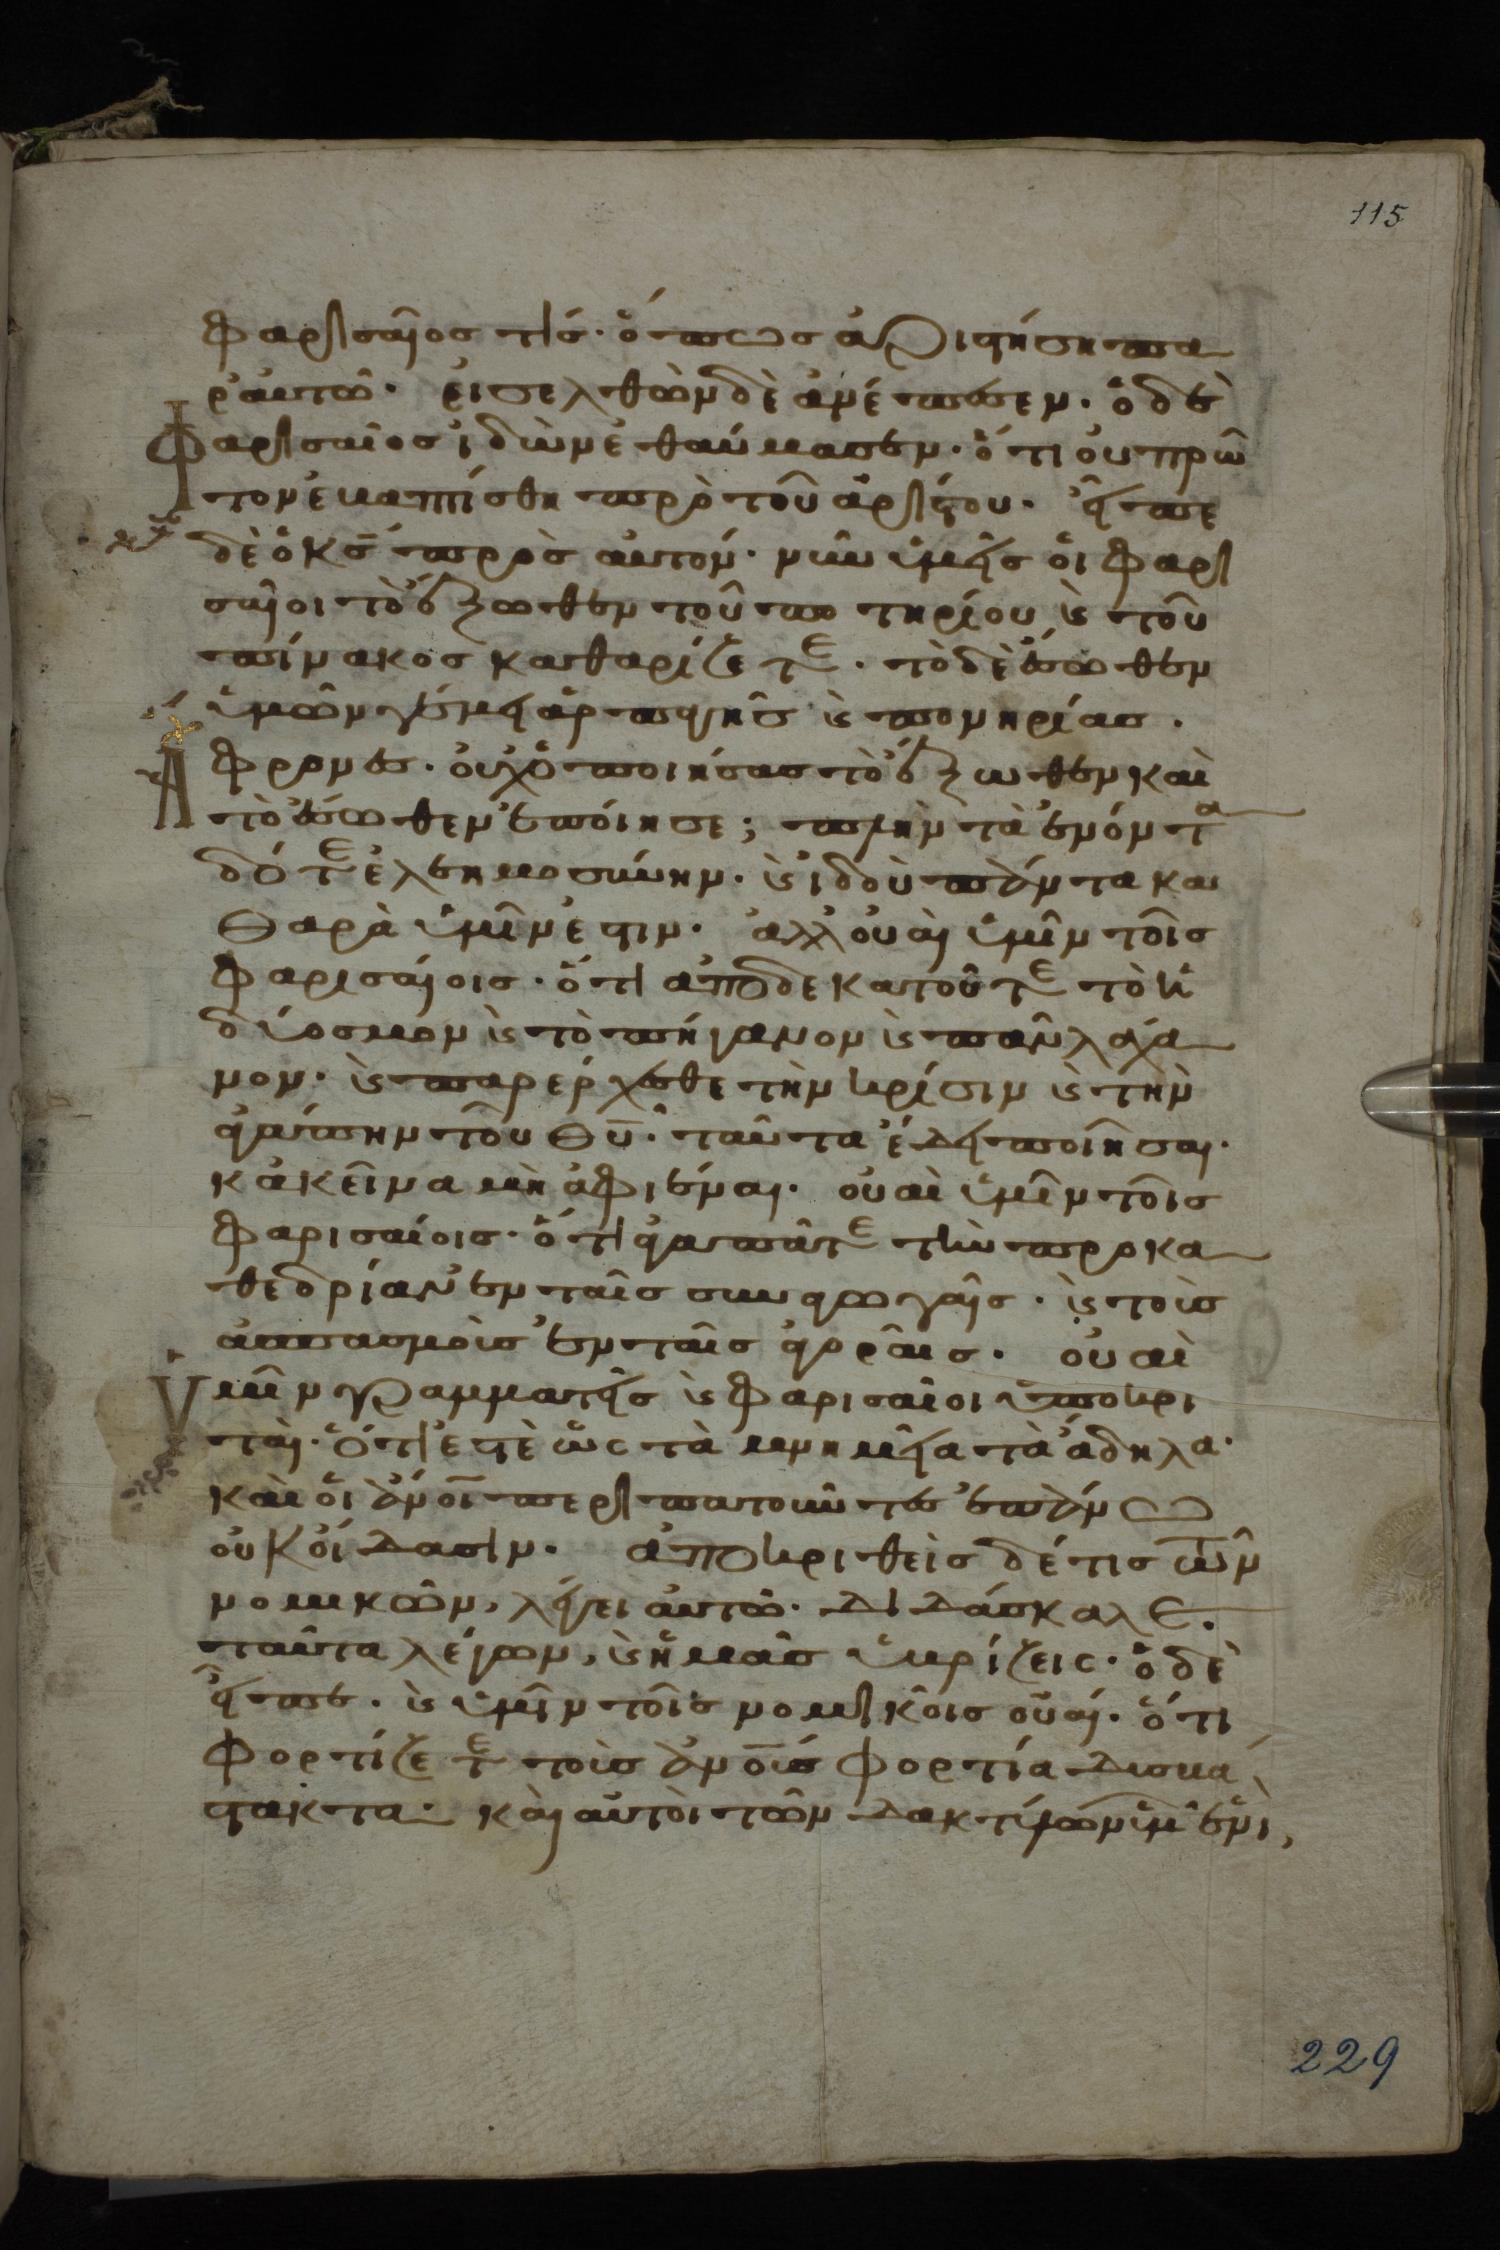 115
φαρισαῖος τίς· ὅπως ἀριστήση πα
ρ' αὐτῶ· εἰσελθὼν δὲ ἀνέπεσεν· ὁ δὲ
Φαρισαῖος ἰδὼν ἐθαύμασεν· ὅτι οὐ πρῶ
τον ἐβαπτίσθη πρὸ τοῦ ἀρίστου· εἶπε
δὲ ὁ κς̅ πρὸς αὐτόν· νῦν ὑμεῖς οἱ φαρι
σαῖοι τὸ ἔξωθεν τοῦ ποτηρίου ϗ τοῦ
πίνακος καθαρίζετε· τὸ δὲ ἔσωθεν
ὑμῶν γέμει ἁρπαγῆς ϗ πονηρίας·
Ἄφρονες· οὐχ ὁ ποιήσας τὸ ἔξωθεν καὶ
τὸ ἔσωθεν ἐποίησε; πλὴν τὰ ἐνόντα
δότε ἐλεημοσύνην· ϗ ἰδοὺ πάντα κα
θαρὰ ὑμῖν ἐστιν· ἀλλ' οὐαὶ ὑμῖν τοῖς
φαρισαίοις· ὅτι ἀποδεκατοῦτε τὸ ἡ
δύοσμον ϗ τὸ πήγανον ϗ πᾶν λάχα
νον· ϗ παρέρχεσθε τὴν κρίσιν ϗ τὴν
ἀγάπην τοῦ θυ̅· ταῦτα ἔδει ποιῆσαι·
κἀκεῖνα μὴ ἀφιέναι· οὐαὶ ὑμῖν τοῖς
φαρισαίοις· ὅτι ἀγαπᾶτε τὴν προκα
θεδρίαν ἐν ταῖς συναγωγαῖς· ϗ τοὺς
ἀσπασμοὺς ἐν ταῖς ἀγοραῖς· οὐαὶ
Ὑμῖν γραμματεῖς ϗ φαρισαῖοι ὑποκρι
ταί· ὅτι ἐστὲ ὡς τὰ μνημεῖα τὰ ἄδηλα·
καὶ οἱ ἄνοι̅ περιπατοῦντες ἐπάνω
οὐκ οἴδασιν· ἀποκριθεὶς δέ τις τῶν
νομικῶν, λέγει αὐτῶ· διδάσκαλε·
ταῦτα λέγων, ϗ ἡμᾶς ὑβρίζεις· ὁ δὲ
εἶπε· ϗ ὑμῖν τοῖς νομικοῖς οὐαί· ὅτι
φορτίζετε τοὺς ἀνου̅ς φορτία δισβά
στακτα· καὶ αὐτοὶ τῶν δακτύλων ὑμῶν ἑνὶ,
229